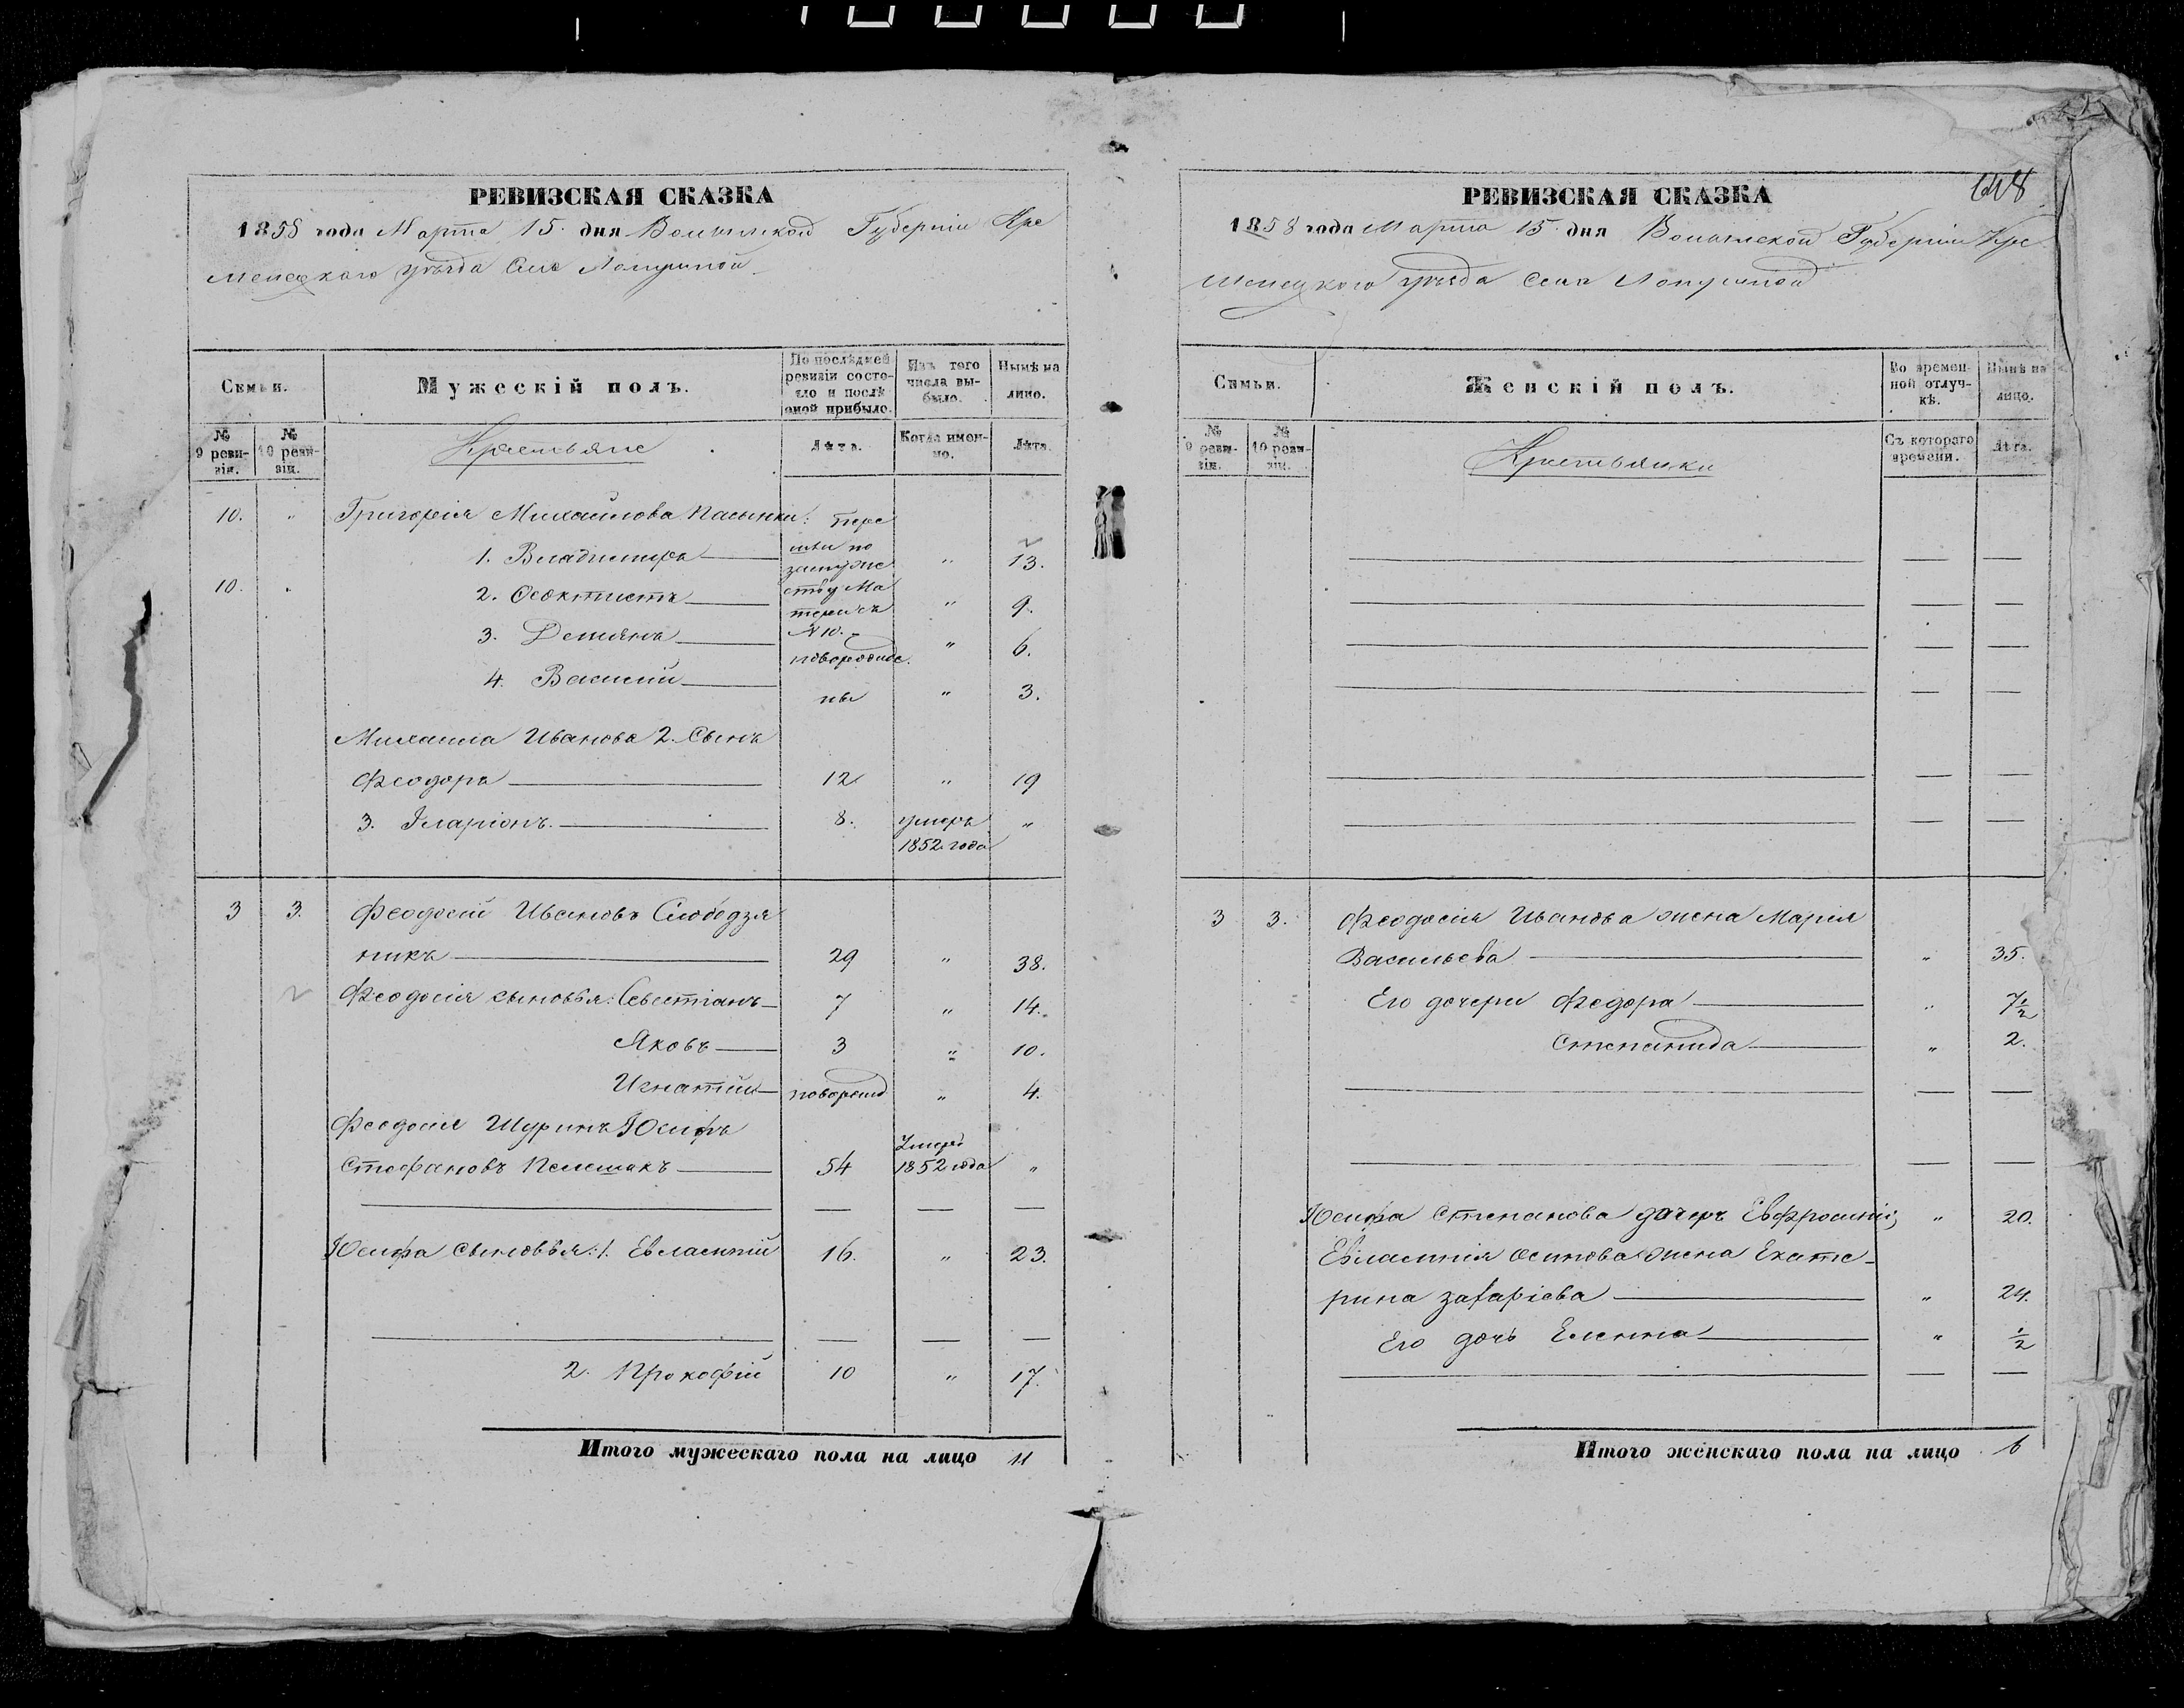 РЕВИЗСКАЯ СКАЗКА
1858 года Марта 15. дня Волынской Губерніи Кре
менецкаго уѣзда Села Лопушной
Семьи.
Мужескій полъ.
По послѣдней ревизіи состояло и послѣ оной прибыло.
Изъ того числа выбыло.
Нынѣ на лицо.
№ 9 ревизіи.
№ 10 ревизіи.
Крестьяне
Лѣта.
Когда именно.
Лѣта.
10. " Григорія Михайлова пасынки: пере
1. Владимиръ шли по замуже " 13.
10. " 2. Феоктистъ ству Ма тери съ " 9.
3. Демянъ № 10. " 6.
новорожде
4. Василій ны " 3.
Михаила Иванова 2. Сынъ
Феодоръ 12 " 19
3. Іларіонъ. 8. умеръ "
1852 года
3 3. Феодосій Ивановъ Слободзя
никъ 29 " 38.
Феодосія сыновья: Севестіанъ 7 " 14.
Яковъ 3 " 10.
Игнатій новорожд " 4.
Феодосія Шуринъ Іосифъ
Стефановъ Пелешакъ 54 Умеръ 1852 года "
Іосифа сыновья: 1. Евласпій 16. " 23.
2. Прокофій 10 " 17.
Итого мужескаго пола на лицо 11
608
РЕВИЗСКАЯ СКАЗКА
1858 года Марта 15 дня Волынской Губерніи Кре
менецкого уѣзда Села Лопушной
Семьи.
Женскій полъ.
Во временной отлучкѣ.
Нынѣ на лицо.
№ 9 ревизіи.
№ 10 ревизіи.
Крестьянки
Съ котораго времени.
Лѣта.
3 3. Феодосія Иванова жена Марія
Васильева " 35.
Его дочери Федора " 7½
Степанида " 2.
Іосифа Степанова дочеръ Евфросинія " 20.
Евласпія Осипова жена Екате
рина Захаріева " 24.
Его дочь Еленна " ½
Итого женскаго пола на лицо 6